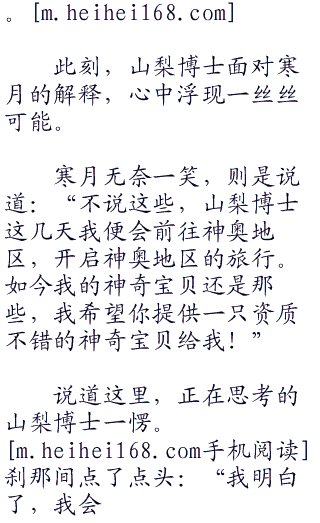 。[m.heihei168.com]
此刻，山梨博士面对寒
月的解释，心中浮现一丝丝
可能。
寒月无奈一笑，则是说
道：“不说这些，山梨博士
这几天我便会前往神奥地
区，开启神奥地区的旅行。
如今我的神奇宝贝还是那
些，我希望你提供一只资质
不错的神奇宝贝给我！”
说道这里，正在思考的
山梨博士一愣。
[m.heihei168.com手机阅读]
刹那间点了点头：“我明白
了，我会